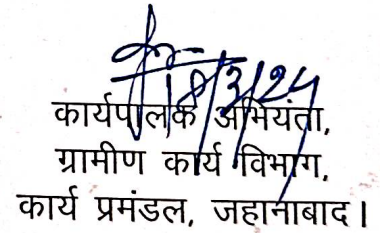 18/3/24
कार्यपालक अभियंता,
ग्रामीण कार्य विभाग,
कार्य प्रमंडल, जहानाबाद।